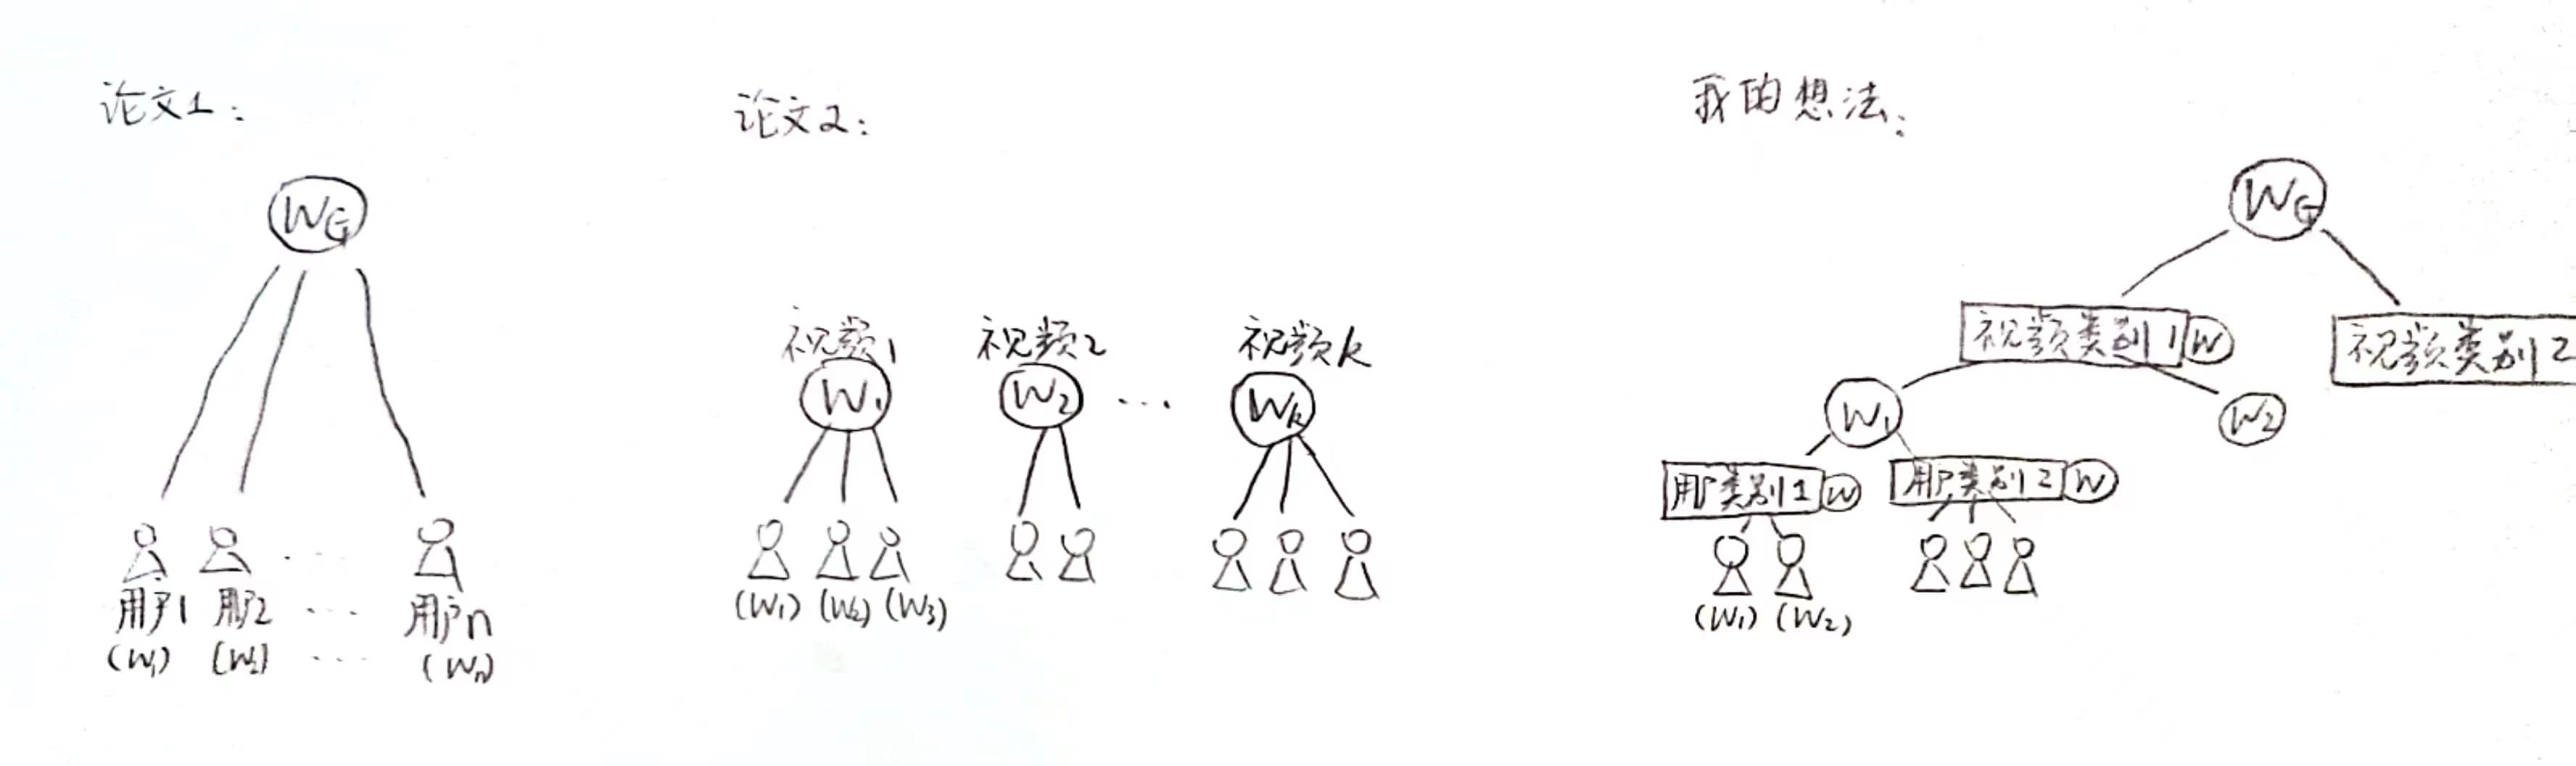 论文1:
WG
用户1 用户2 ... 用户n
(W1) (W2) ... (Wn)
论文2:
视频1 视频2 视频k
W1 W2 ... Wk
(W1) (W2) (W3)
我的想法:
WG
视频类别1 W 视频类别2
W1 W2
用户类别1 W 用户类别2 W
(W1) (W2)